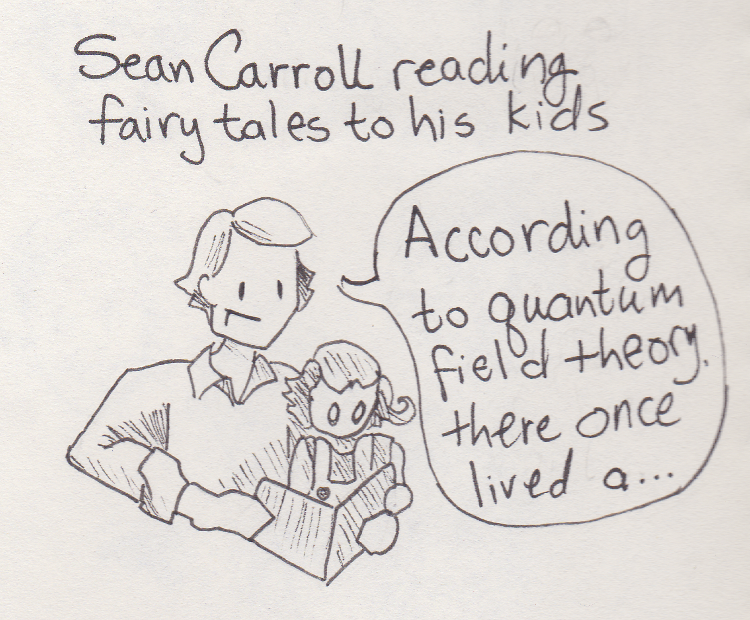 Sean Carroll reading
fairy tales to his kids
According
to quantum
field theory,
there once
lived a...